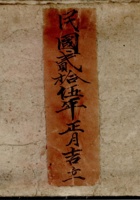 民國貳拾伍年正月吉立